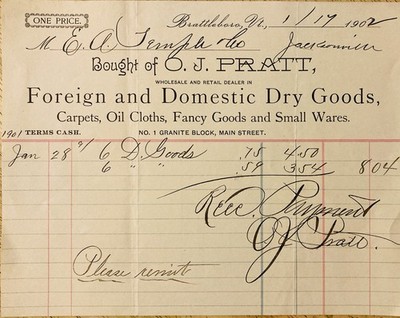 ONE PRICE.
Brattleboro, Vt., 1/17 1902
M E. A. Temple & Co Jacksonville
Bought of O. J. PRATT,
WHOLESALE AND RETAIL DEALER IN
Foreign and Domestic Dry Goods,
Carpets, Oil Cloths, Fancy Goods and Small Wares.
1901 TERMS CASH. NO. 1 GRANITE BLOCK, MAIN STREET.
Jan 28 6 D. Goods .75 4.50
6 " " .59 3 54 8 04
Rec. Payment
O J Pratt.
Please remit